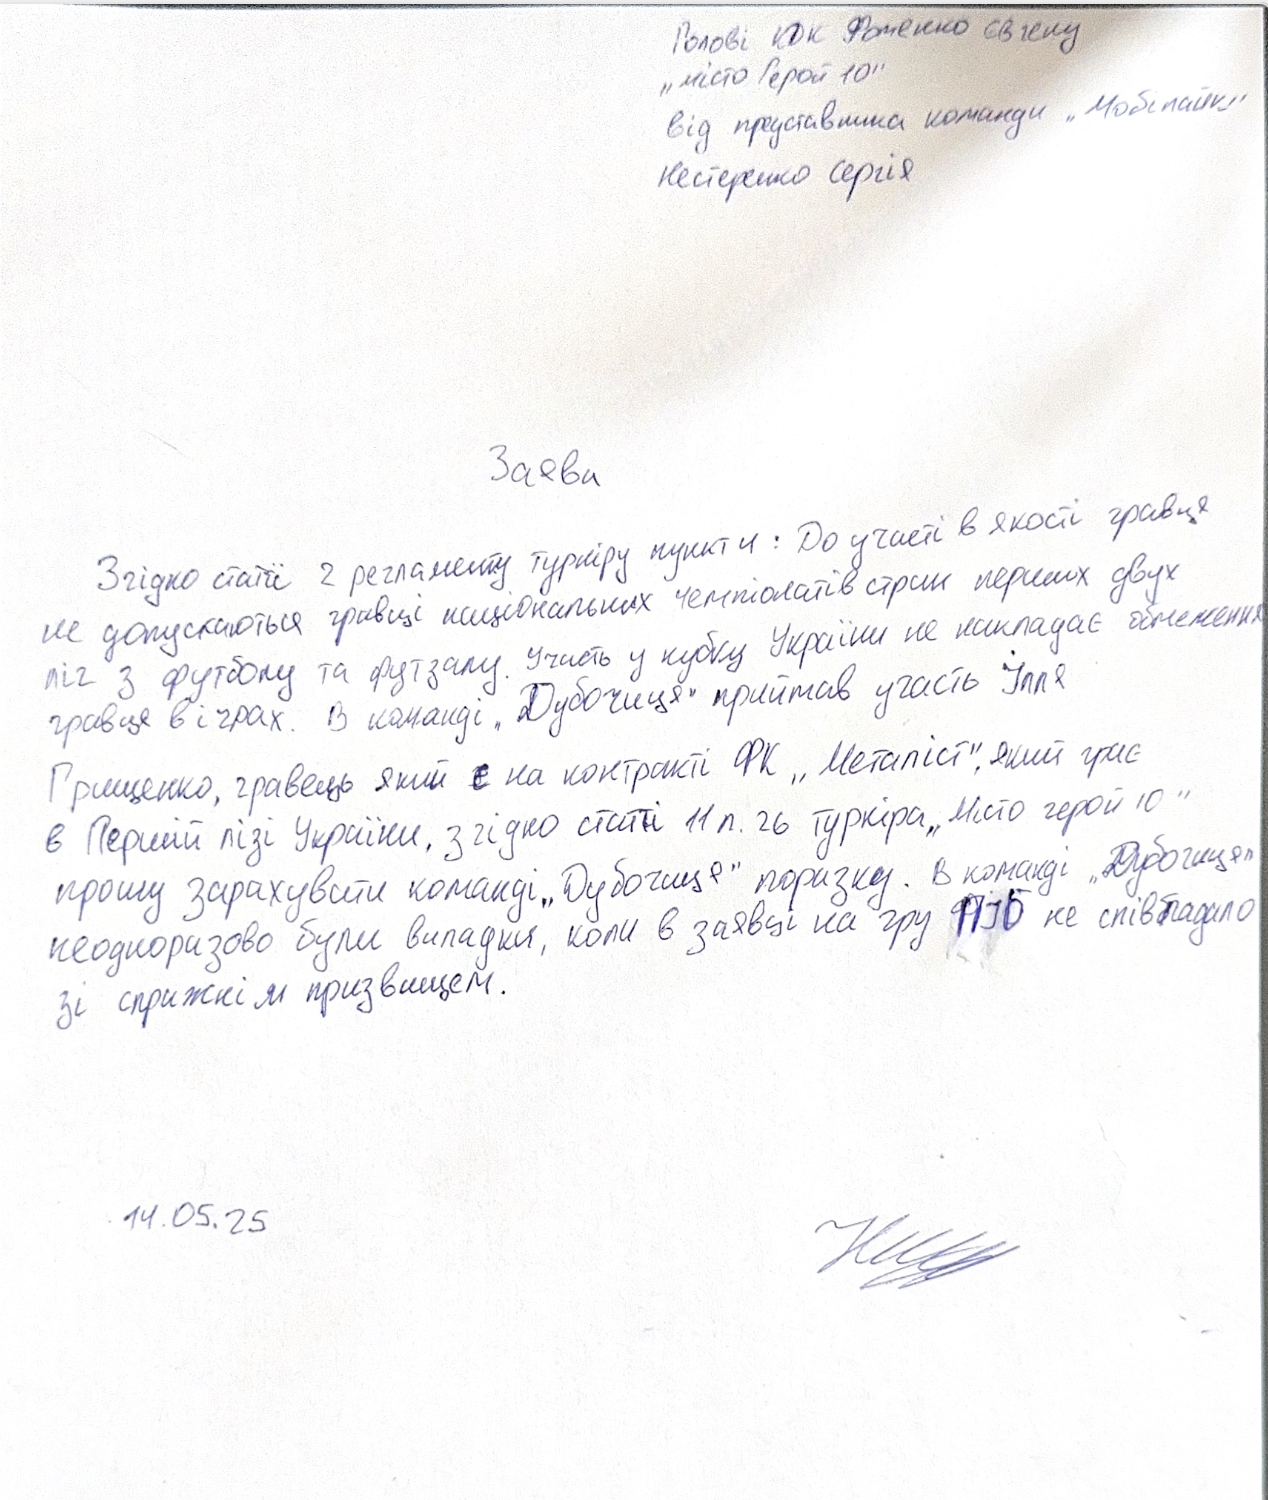 Голові КДК Фоменко Євгену
„місто Герой 10"
від представника команди „Мобілайк"
Нестеренко Сергія
Заява
Згідно статті 2 регламенту турніру пункт 4: До участі в якості гравця
не допускаються гравці національних чемпіонатів країн перших двух
ліг з футболу та футзалу. Участь у кубку України не накладає обмеження
гравця в іграх. В команді „Дубочиця" приймав участь Ілля
Грищенко, гравець який є на контракті ФК „Металіст", який грає
в Першій лізі України, згідно статті 11 п. 26 турніра „Місто герой 10"
прошу зарахувати команді „Дубочиця" поразку. В команді „Дубочиця"
неодноразово були випадки, коли в заявці на гру ПІБ не співпадало
зі справжнім призвищем.
14.05.25